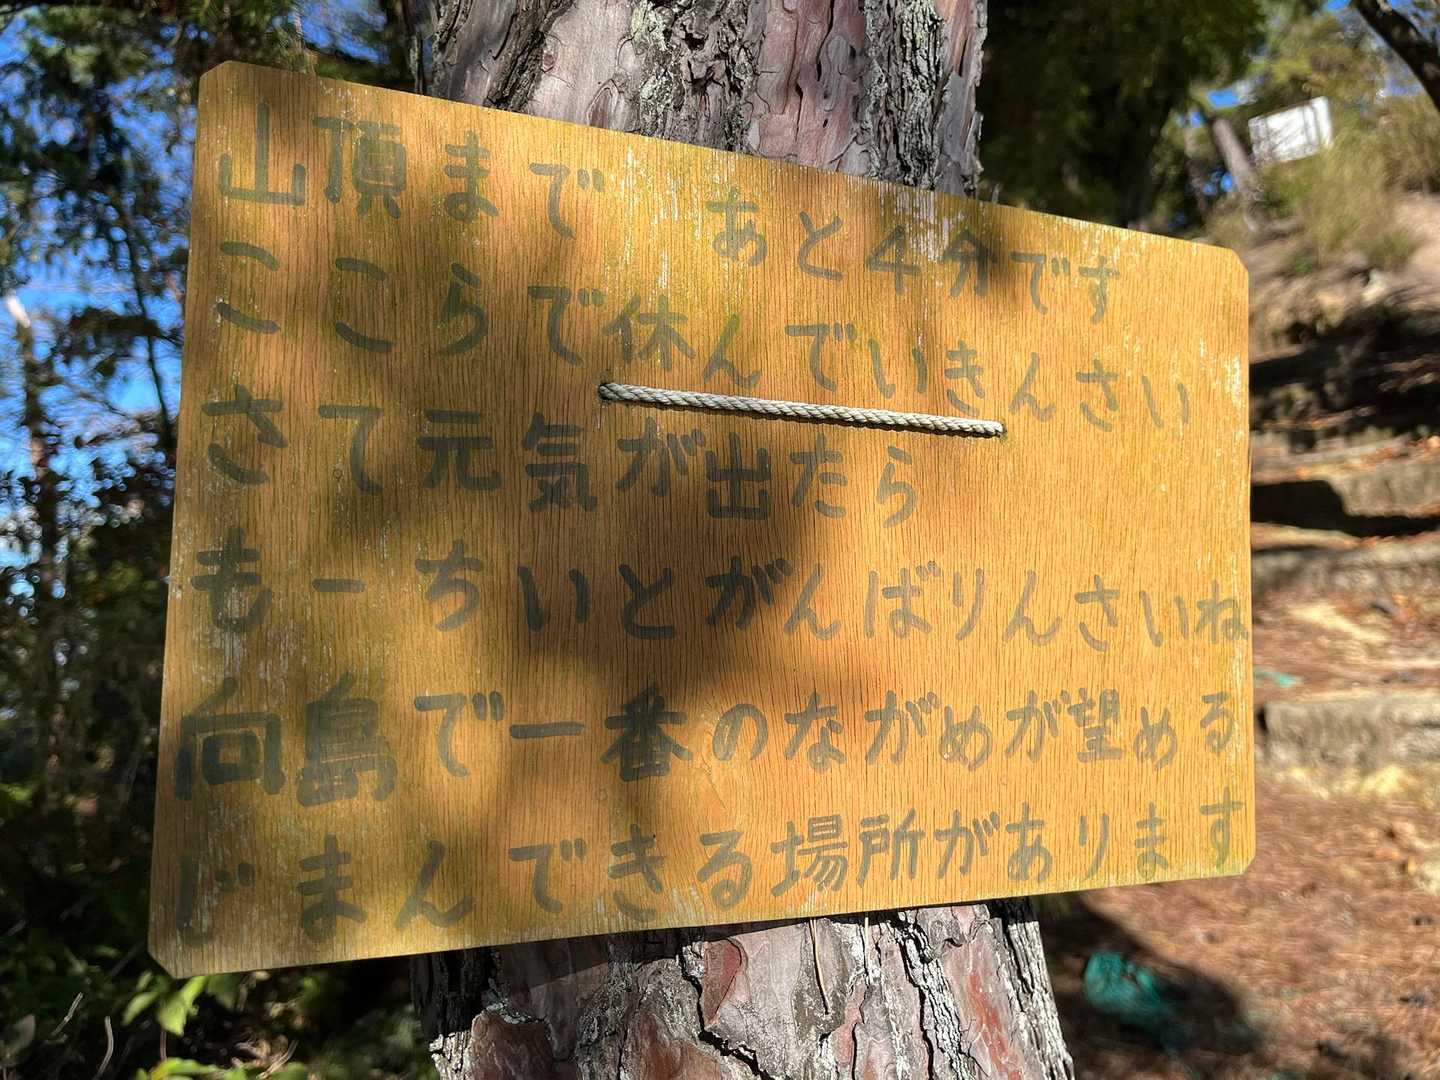 山頂まで あと4分です
ここらで休んでいきんさい
さて元気が出たら
もーちいとがんばりんさいね
向島で一番のながめが望める
じまんできる場所があります